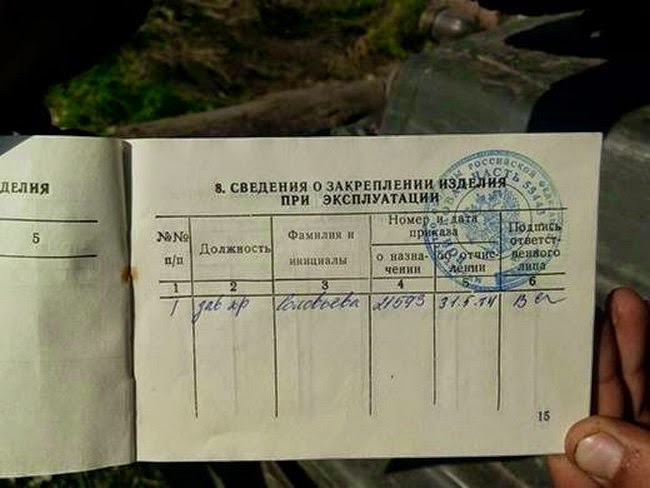 ДЕЛИЯ
5
8. СВЕДЕНИЯ О ЗАКРЕПЛЕНИИ ИЗДЕЛИЯ
ПРИ ЭКСПЛУАТАЦИИ
№№
п/п
Должность
Фамилия и
инициалы
Номер и дата
приказа
о назна-
чении
об отчис-
лении
Подпись
ответст-
венного
лица
1 2 3 4 5 6
1 зав хр Соловьева 21593 31.5.14
РОССИЙСКОЙ ФЕДЕРА
ЧАСТЬ
15